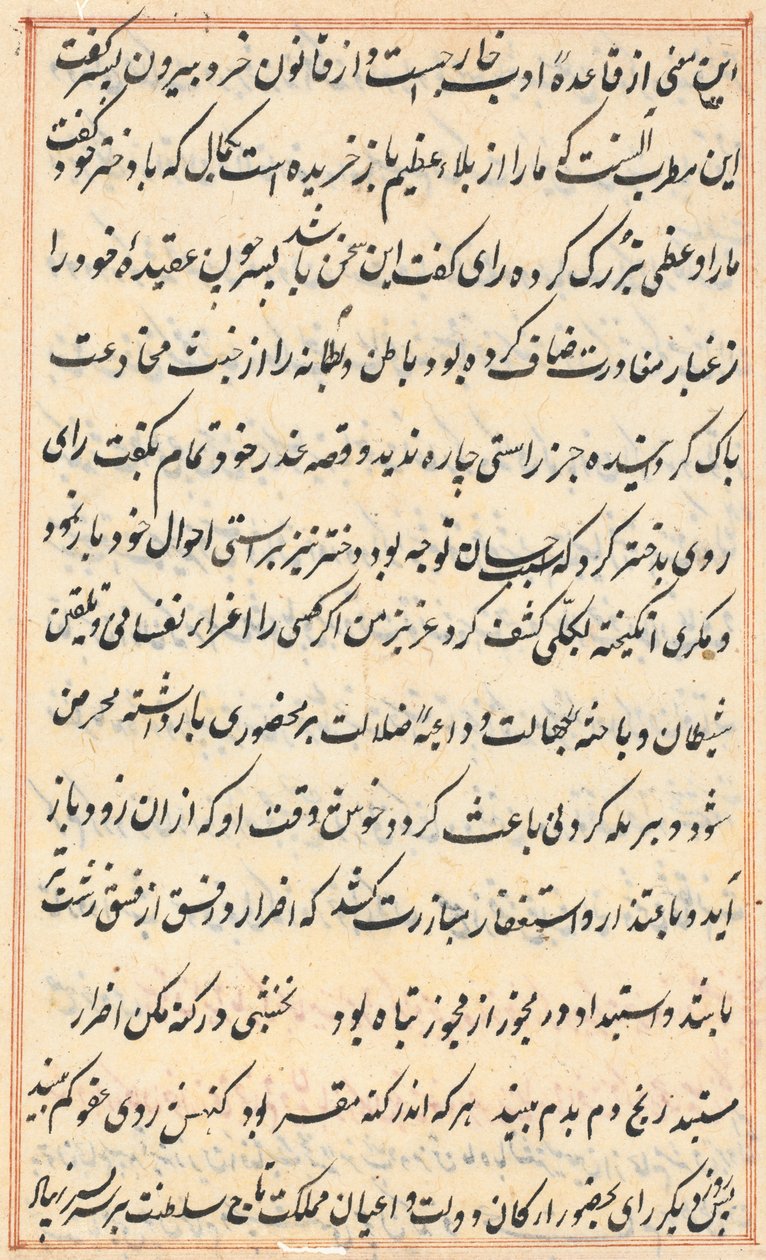 این معنی از قاعدهٔ ادب خارجست و از قانون خرد بیرون پسر گفت
این مطرب آنست که ما را از بلاء عظیم باز خریده است بکمال که با دختر خود گفت
ما را و عظمی بزرگ کرده رای گفت این سخن باشد پسر چون عقیدهٔ خود را
ز غبار مغادرت صاف کرده بود باطن و بطانه را از خبث مخادعت
پاک گردانیده جز راستی چاره ندید و قصه غدر خود تمام بگفت رای
روی بدختر کرد که سبب احسان توجه بود دختر نیز براستی احوال خود باز نمود
و مکری انگیخته بکلّی کشف کرد عزیز من اگر کسی را اغراء نفسانی و تلقین
شیطان و باعثهٔ جهالت و داعیهٔ ضلالت بر محضوری بار داشته محرمن
شود و بر بله کردنی باعث گردد خوش وقت او که از ان زود باز
آید و باعتذار و استغفار مبادرت کند که اصرار در فسق از فسق زشت تر
باشد و استبداد در فجور از فجور تباه بود نخشبی در گنه مکن اصرار
مستبد رنج دم بدم بیند هر که اندر گنه مقر بود گنهش روی عفو کم بیند
پس روز دیگر رای بحضور ارکان دولت و اعیان مملکت تاج سلطنت بر سر پسر نهاد